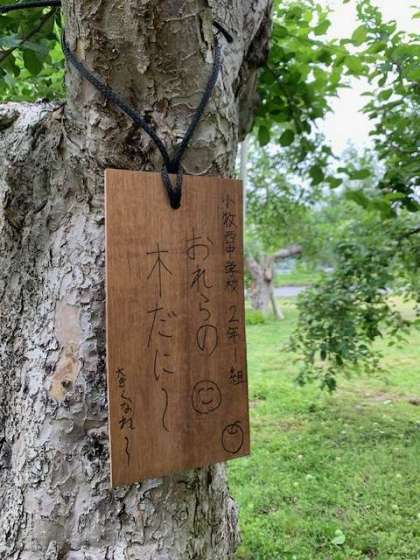 小牧西中学校 2年1組
おれらの
木だに〜
大きくなれ〜